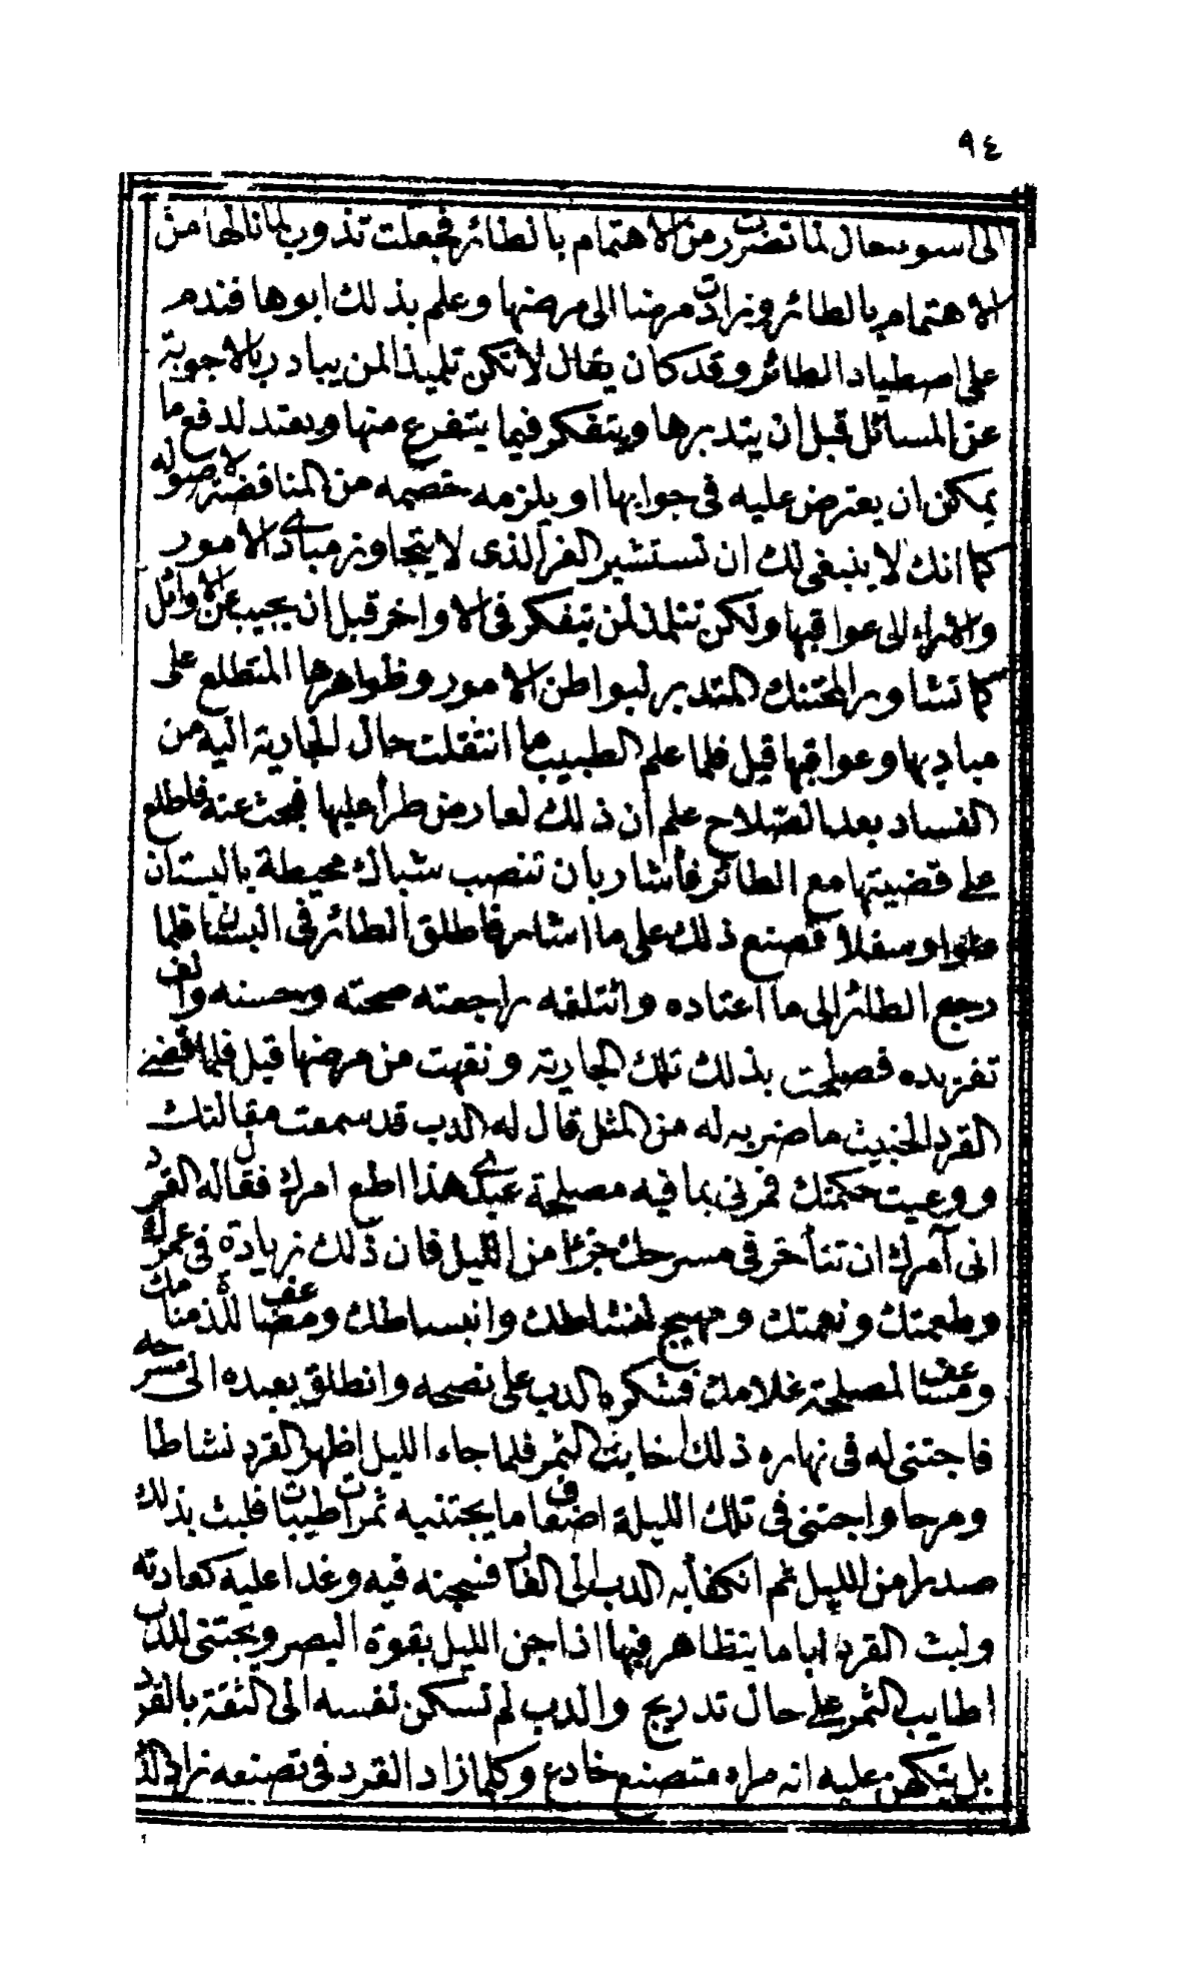 ٩٤
الى اسو حال لما تضررت من الاهتمام بالطائر فجعلت تذوب لما نالها من
الاهتمام بالطائر وزادت مرضا الى مرضها وعلم بذلك ابوها فندم
على اصطياد الطائر وقد كان يقال لا تكن تلميذا لمن يبادر بالاجوبة
عن المسائل قبل ان يتدبرها ويتفكر فيما يتفرع منها ويعتد لدفع ما
يمكن ان يعترض عليه فى جوابها او يلزمه خصمه من المناقضة لاصوله
كما انك لا ينبغى لك ان تستشير الغر الذى لا يتجاوز مبادى الامور
والاراء الى عواقبها ولكن تتلمذ لمن يتفكر فى الاواخر قبل ان يجيب عن الاوائل
كما تشاور المحتنك المتدبر لبواطن الامور وظواهرها المتطلع على
مباديها وعواقبها قيل فلما علم الطبيب ما انتقلت حال الجارية اليه من
الفساد بعد الصلاح علم ان ذلك لعارض طرأ عليها فبحث عنه فاطلع
على قضيتها مع الطائر فأشار بان تنصب شباك محيطة بالبستان
علوا وسفلا فصنع ذلك على ما اشار فاطلق الطائر فى البستان فلما
رجع الطائر الى ما اعتاده وائتلفه راجعته صحته وحسنه والف
تغريده فصلحت بذلك تلك الجارية ونقهت من مرضها قيل فلما قضى
القرد الخبيث ما ضربه له من المثل قال له الدب قد سمعت مقالتك
ووعيت حكمتك فمرنى بما فيه مصلحة عبدى هذا اطع امرك فقال له القرد
انى آمرك ان تتأخر فى مسرحك جزءا من الليل فان ذلك زيادة فى عمرك
وطعمتك ونعمتك ومهيج لنشاطك وانبساطك ومضاعفة للذ منامك
ومضاعف لمصلحة غلامك فشكره الدب على نصحه وانطلق بعبده الى مسرحه
فاجتنى له فى نهاره ذلك اخابث الثمر فلما جاء الليل اظهر القرد نشاطا
ومرحا واجتنى فى تلك الليلة اضعاف ما يجتنيه ثمرات طيبات فلبث بذلك
صدرا من الليل ثم انكفأ به الدب الى الغار فسجنه فيه وغدا عليه كعادته
ولبث القرد اياما يتظاهر فيها اذا جن الليل بقوة البصر ويجتنى للدب
اطايب الثمر على حال تدريج والدب لم تسكن نفسه الى الثقة بالقرد
بل يتكهن عليه انه مراء متصنع خادع وكلما زاد القرد فى تصنعه زاد الد